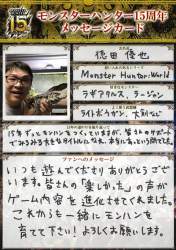 15
モンスターハンター15周年
メッセージカード
徳田 優也
Monster Hunter:World
ラギアクルス、ラージャン
ライトボウガン、大剣など
15年ずっとモンハンをつくっていますが、皆さんのサポート
でみるみる大きなタイトルになり、
ファンへのメッセージ
いつも遊んでくださりありがとうござ
います。皆さんの「楽しかった」の声が
ゲーム内容を進化させてくれました。
これからも一緒にモンハンを
育てて下さい！よろしくお願いします。